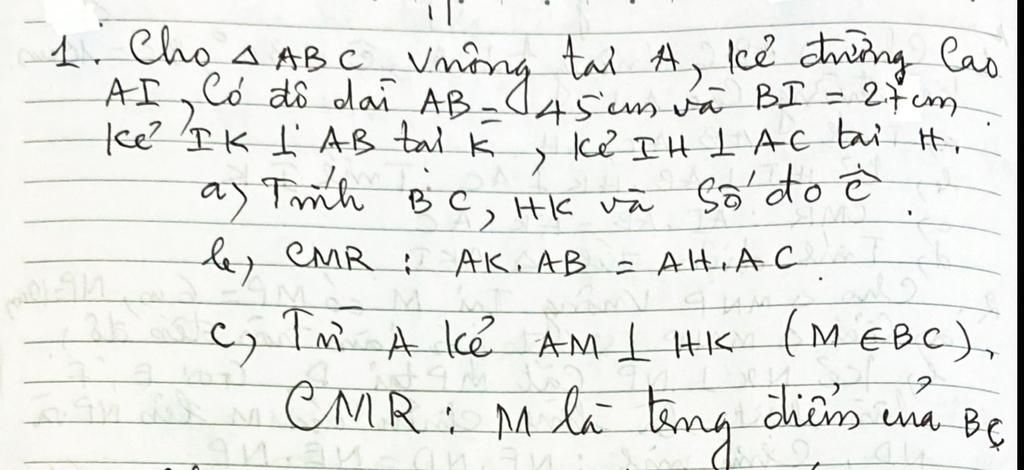 1. Cho △ ABC vuông tại A, kẻ đường cao
AI, Có độ dài AB = 45 cm và BI = 27 cm.
Kẻ IK ⊥ AB tại K, kẻ IH ⊥ AC tại H.
a, Tính BC, HK và số đo Ĉ.
b, CMR : AK. AB = AH. AC
c, Từ A kẻ AM ⊥ HK (M ∈ BC),
CMR : M là trung điểm của BC